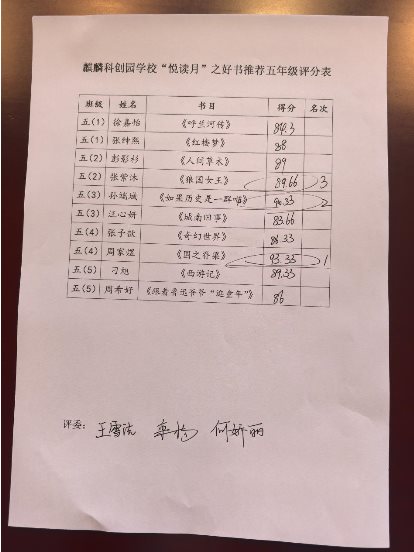 麒麟科创园学校“悦读月”之好书推荐五年级评分表
班级 姓名 书目 得分 名次
五(1) 徐嘉怡 《呼兰河传》 84.3
五(1) 张绅燕 《红楼梦》 88
五(2) 彭彩杉 《人间草木》 89
五(2) 张紫沐 《狼国女王》 89.66 3
五(3) 孙瑞域 《如果历史是一群喵》 90.33 2
五(3) 汪心妍 《城南旧事》 83.66
五(4) 张子歆 《奇幻世界》 88.33
五(4) 周家煜 《国之脊梁》 93.33 1
五(5) 刁旭 《西游记》 89.33
五(5) 周希好 《跟着鲁迅爷爷“逛童年”》 86
评委: 何娇丽